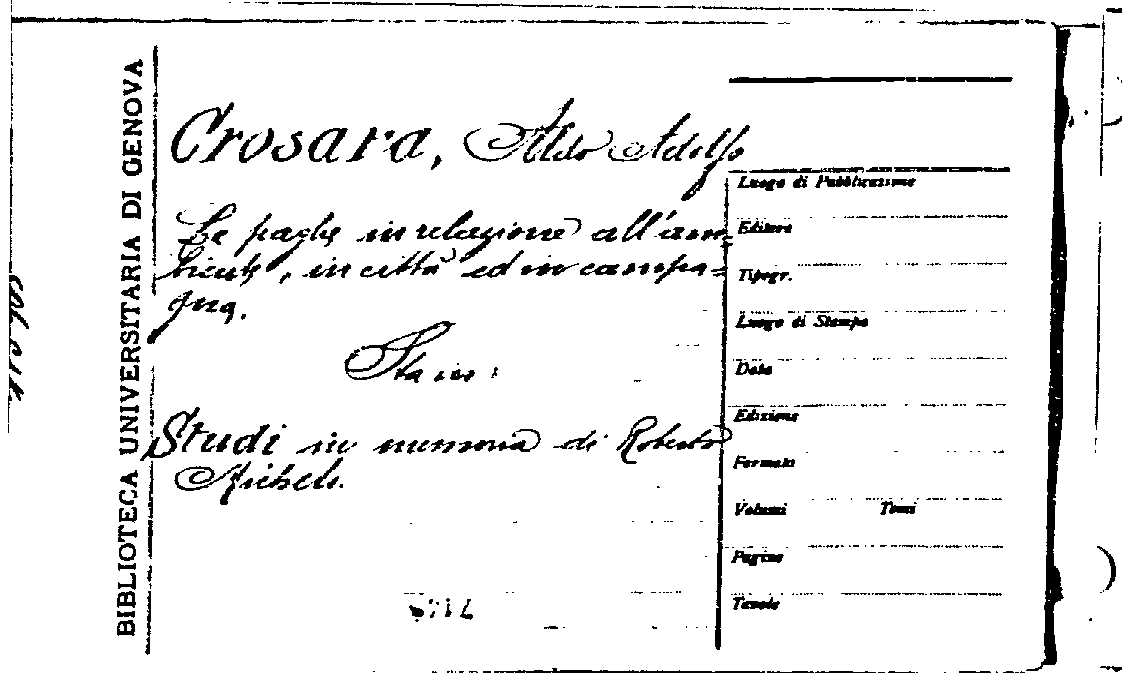 BIBLIOTECA UNIVERSITARIA DI GENOVA
Crosara, Aldo Adolfo
Le paghe in relazione all'am-
biente, in città ed in campa=
gna.
Sta in:
Studi in memoria di Roberto
Michels.
Luogo di Pubblicazione
Editore
Tipogr.
Luogo di Stampa
Data
Edizione
Formato
Volumi Tomi
Pagine
Tavole